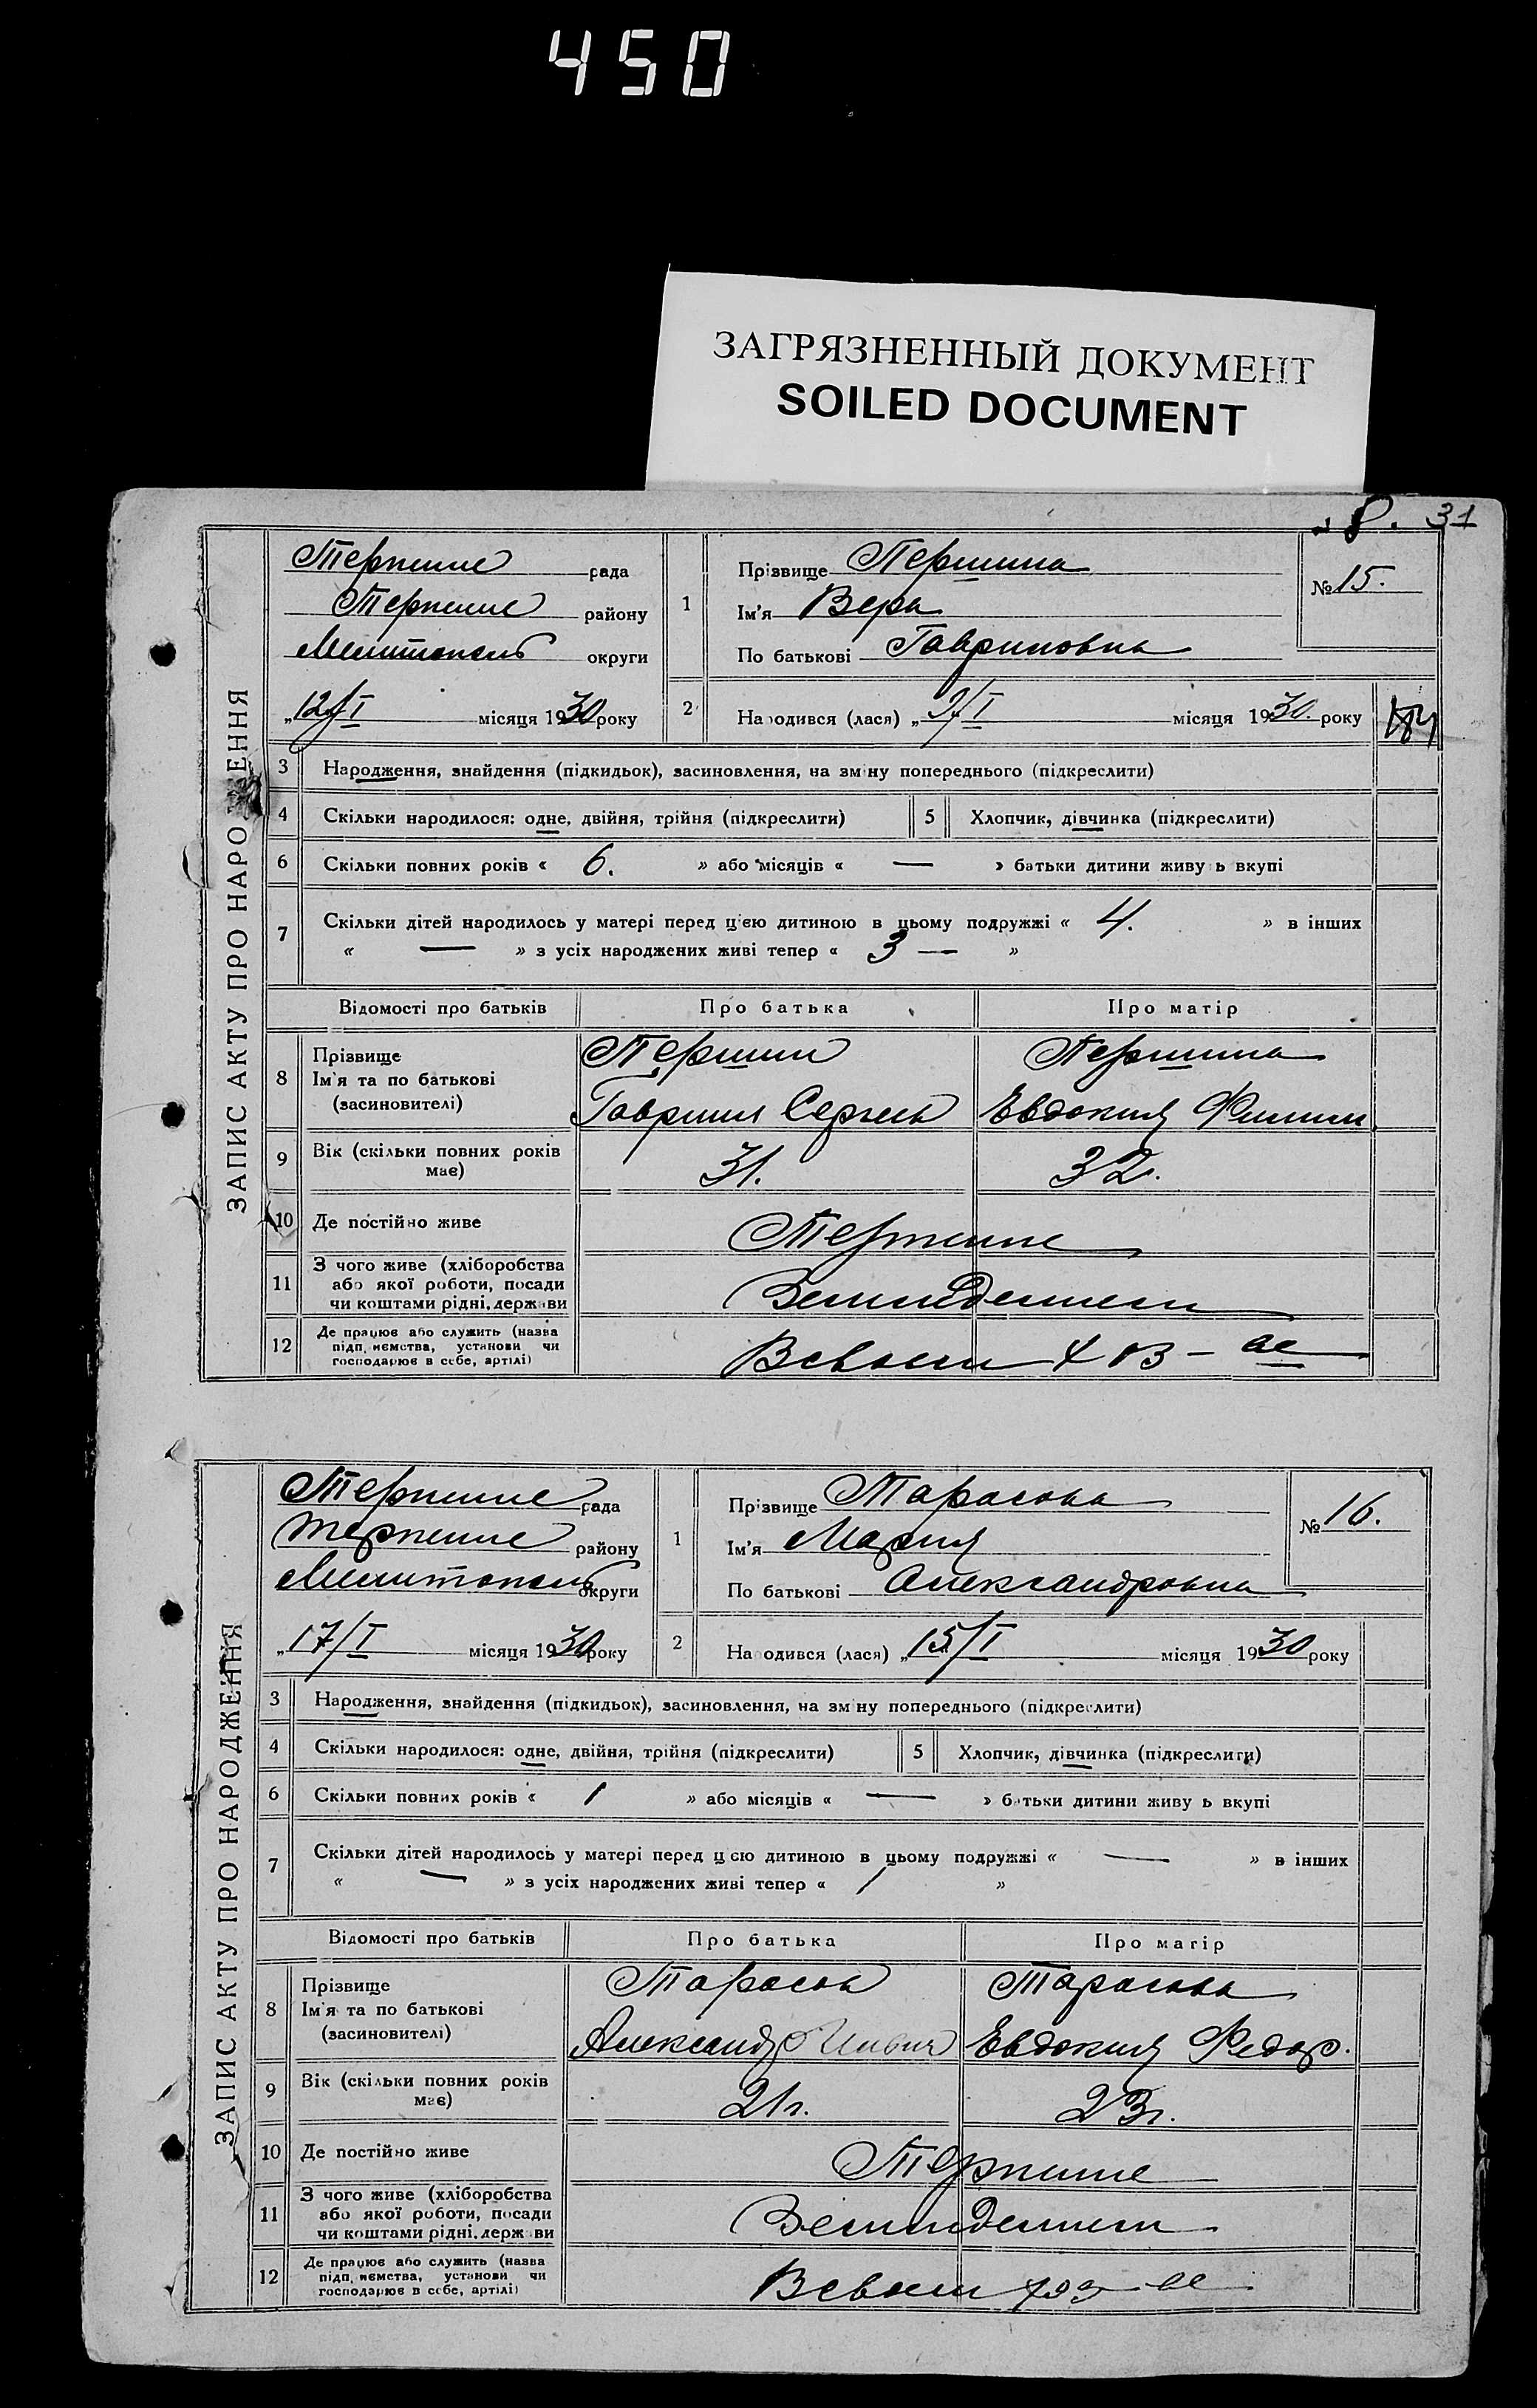 450
ЗАГРЯЗНЕННЫЙ ДОКУМЕНТ
SOILED DOCUMENT
8. 31
ЗАПИС АКТУ ПРО НАРО ЕННЯ
Терпение рада
Терпение району
Мелитополь округи
„12/I місяця 1930 року
1
Прізвище Першина
Ім'я Вера
По батькові Гавриловна
№ 15.
2 На одився (лася) „ 9/I місяця 1930. року
3 Народження, знайдення (підкидьок), засиновлення, на зм ну попереднього (підкреслити)
4 Скільки народилося: одне, двійня, трійня (підкреслити) 5 Хлопчик, дівчинка (підкреслити)
6 Скільки повних років « 6. » або місяців « — » батьки дитини живу ь вкупі
7 Скільки дітей народилось у матері перед цією дитиною в цьому подружжі « 4. » в інших
« — » з усіх народжених живі тепер « 3 — »
Відомості про батьків Про батька Про матір
8 Прізвище Першин Першина
Ім'я та по батькові
(засиновителі) Гаврилл Сергеев Евдокия Филип
9 Вік (скільки повних років
має) 31. 32.
10 Де постійно живе Терпение
11 З чого живе (хліборобства
або якої роботи, посади
чи коштами рідні, держ ви Земледелием
12 Де працює або служить (назва
підп. ємства, установи чи
господарює в себе, артілі) В своем х оз-ве
ЗАПИС АКТУ ПРО НАРОДЖЕННЯ
Терпение рада
Терпение району
Мелитополь округи
„17/I місяця 1930 року
1
Прізвище Тарасова
Ім'я Мария
По батькові Александровна
№ 16.
2 На одився (лася) „ 15/I місяця 1930 року
3 Народження, знайдення (підкидьок), засиновлення, на зм ну попереднього (підкреслити)
4 Скільки народилося: одне, двійня, трійня (підкреслити) 5 Хлопчик, дівчинка (підкреслити)
6 Скільки повних років « 1 » або місяців « — » б тьки дитини живу ь вкупі
7 Скільки дітей народилось у матері перед цією дитиною в цьому подружжі « — » в інших
« — » з усіх народжених живі тепер « 1 »
Відомості про батьків Про батька Про матір
8 Прізвище Тарасов Тарасова
Ім'я та по батькові
(засиновителі) Александр Евдокия Федор.
9 Вік (скільки повних років
має) 21г. 23г.
10 Де постійно живе Терпение
11 З чого живе (хліборобства
або якої роботи, посади
чи коштами рідні, держ ви Земледелием
12 Де працює або служить (назва
підп. ємства, установи чи
господарює в себе, артілі) В своем хоз-ве